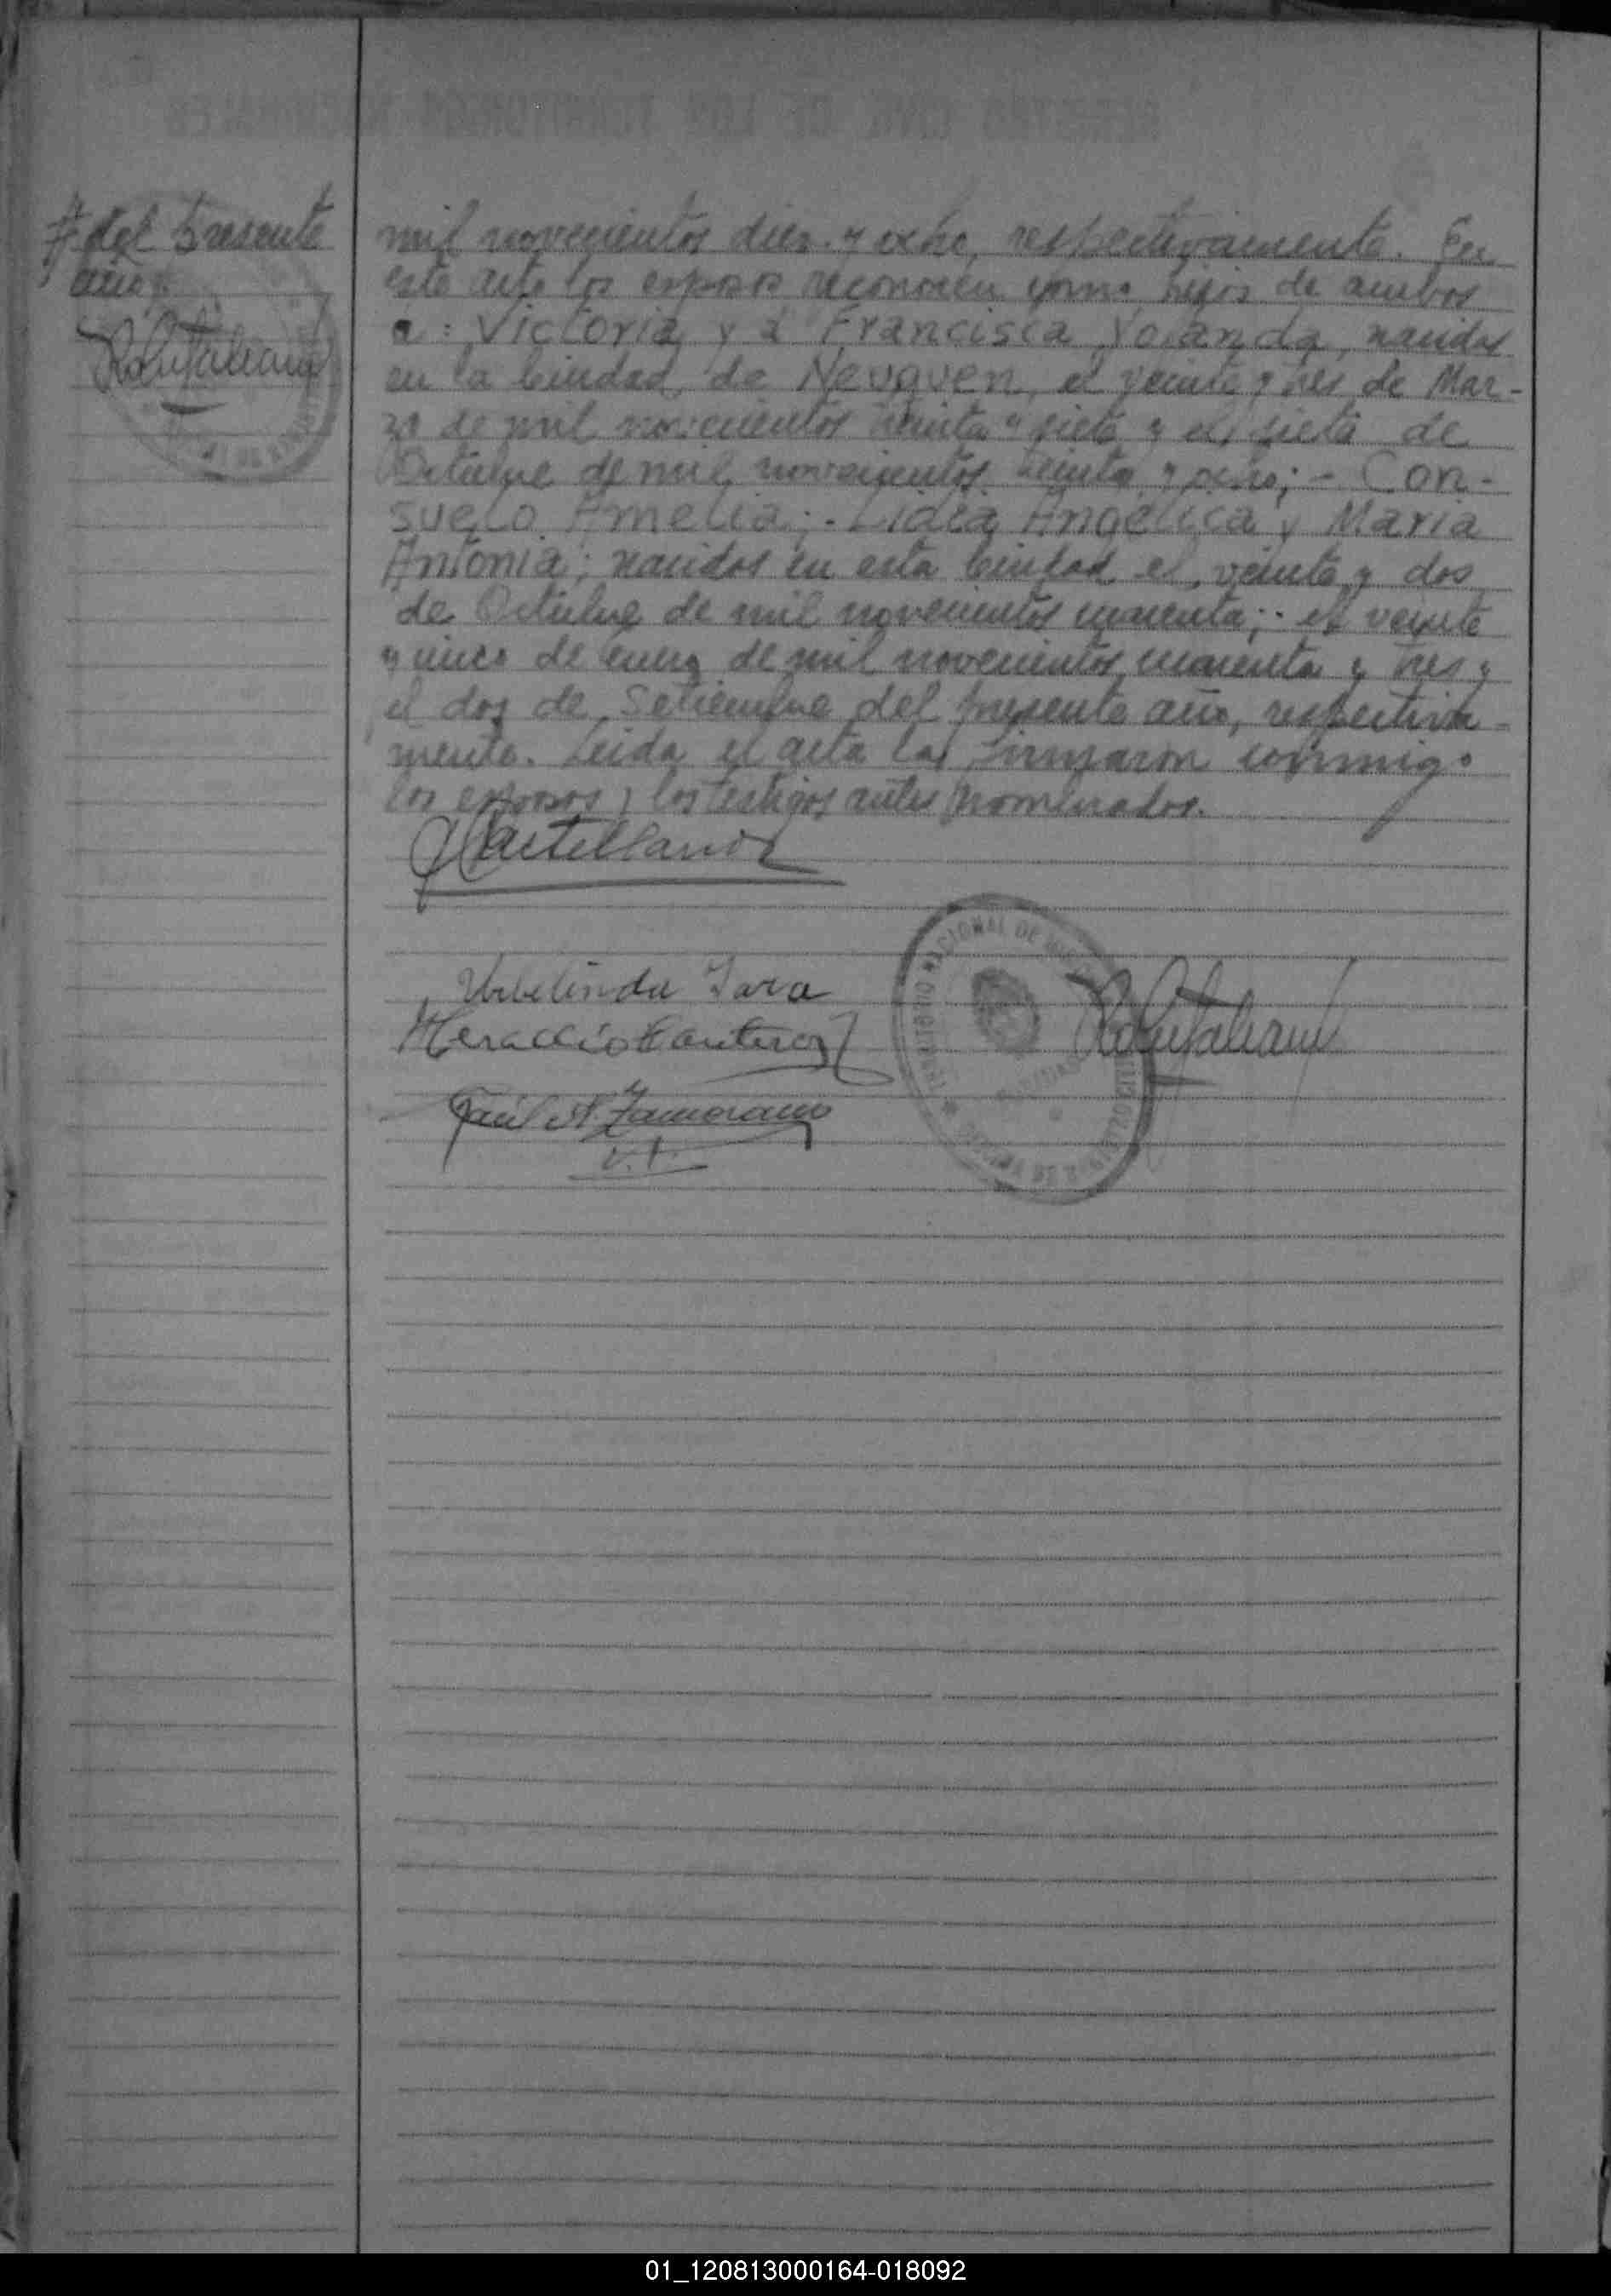 del presente
año
mil novecientos diez y ocho, respectivamente. En
este acto los esposos reconocen como hijos de ambos
a: Victoria y a Francisca Yolanda, nacidas
en la Ciudad de Neuquen, el veinte y tres de Mar-
zo de mil novecientos treinta y siete y el siete de
Octubre de mil novecientos treinta y ocho; - Con-
suelo Amelia; - Lidia Angelica y Maria
Antonia; nacidos en esta Ciudad el veinte y dos
de Octubre de mil novecientos cuarenta; - el veinte
y cinco de enero de mil novecientos cuarenta y tres y
el dos de Setiembre del presente año, respectiva-
mente. Leida el acta la firmaron conmigo
los esposos y los testigos antes nombrados.
Castellanos
Urbelinda Jara
Heraclio
A. Zamorano
01_120813000164-018092